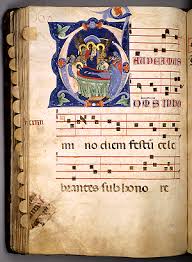 GAUDEAMUS
OMS IN DO
mi no diem festū cele
brantes sub hono re